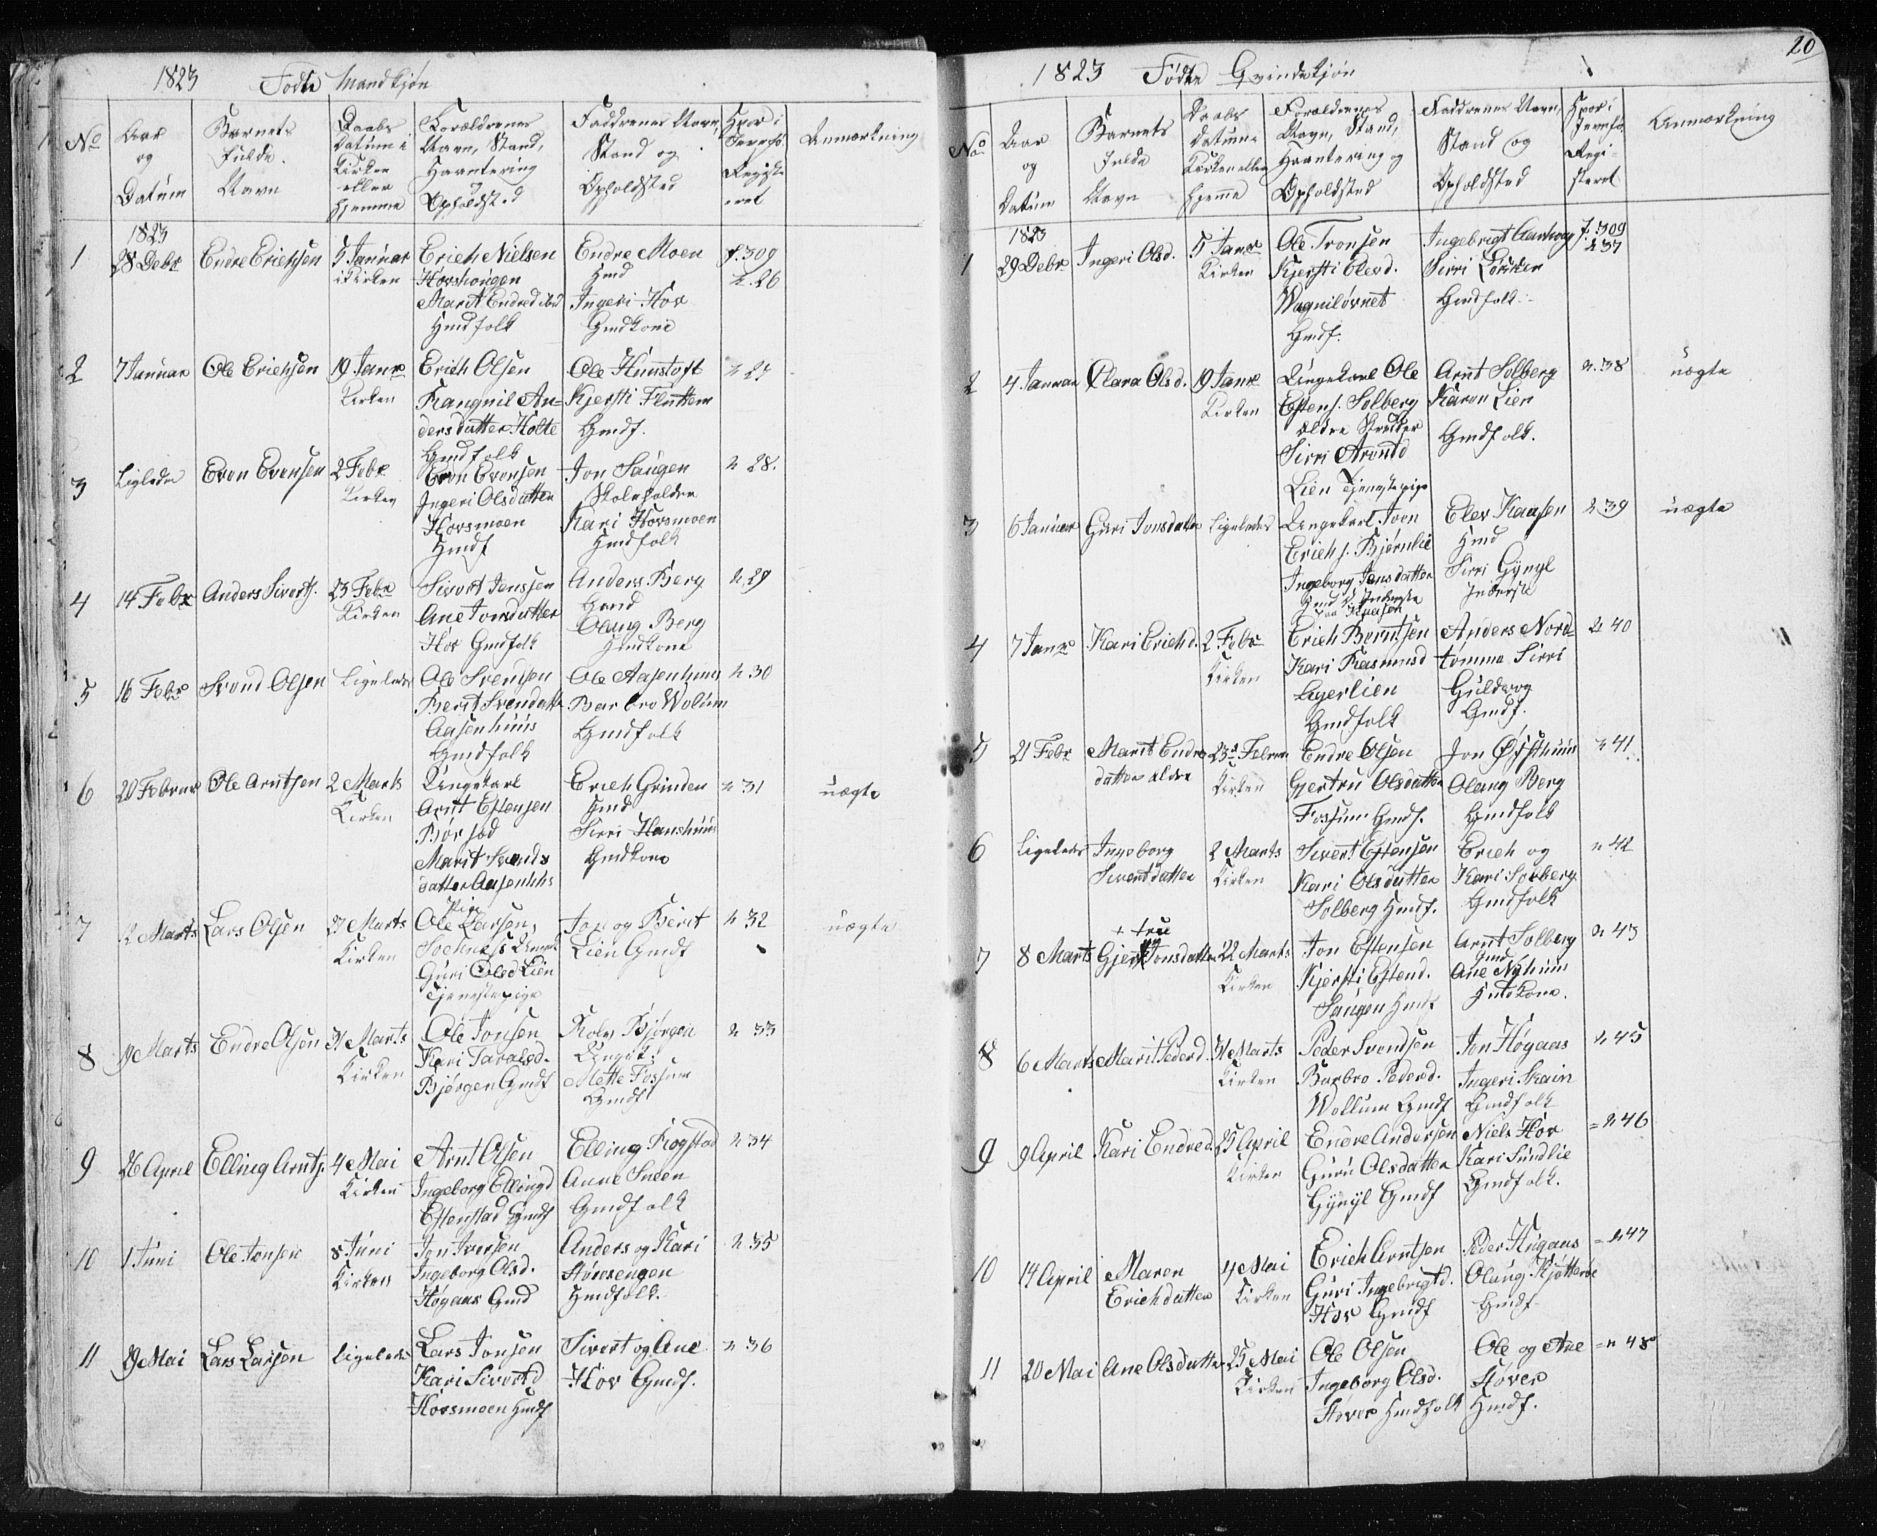 1823 Fødte Mandkjøn
No
Aar og Datum
Barnets fulde Navn
Daabs Datum i Kirken eller Hjemme
Forældrenes Navn, Stand, Haantering Opholdsted
Faddrenes Navn, Stand og Opholdsted
Hvor i Jevnfø. Registeret
Anmærkning
1823
1
28 Debr
Endre Erichsen
5 Januar i Kirken
Erich Nielsen
Marit Endred
Gmdfolk
Endre Moen
Gmd
Ingeri Hov
Gmdkone
f. 309
n. 26
2
7 Januar
Ole Erichsen
19 Janr
Kirken
Erich Olsen
Rangnil An-
dersdatter Holte
Gmdfolk
Ole Hunstoft
Kjersti Flutten
Gmdf.
n 27
3
Ligledes
Even Evensen
2 Febr
Kirken
Even Evensen
Ingeri Olsdatter
Hovsmoen
Gmdf
Jon Haugen
Skoleholder
Kari Hovsmoen
Gmdfolk
n 28.
4
14 Febr
Anders Siverts.
23 Febr
Kirken
Sivert Jenssen
Ane Jonsdatter
Hov Gmdfolk
Anders Berg
Gmd
Olaug Berg
Gmdkone
n 29
5
16 Febr
Svend Olsen
Ligeledes
Ole Svensen
Berit Svendatter
Aasenhuus
Gmdfolk
Ole Aasenhuus
Barbro Wolum
Gmdfolk
n 30
6
20 Februar
Ole Arntsen
2 Marts
Kirken
Ungekarl
Arnt Estensen
Marit Svends
datter Aasenhhs
Pige
Erich Grinden
Gmd
Sirri Hanshuus
Gmdkone
n 31
uægte
7
2 Marts
Lars Olsen
Marts
Kirken
Ole Larsen,
Guri Olsd Lien
Tjenestepige
Jon og Berit
Lien Gmdf
n 32
uægte
8
9 Marts
Endre Olsen
31 Marts
Kirken
Ole Jonsen
Kari Taralsd.
Bjørgen Gmdf
Kolv Bjørgen
Ungk.
Mette Fossum
Gmdf
n 33
9
26 April
Elling Arnts.
4 Mai
Kirken
Arnt Olsen
Ingeborg Ellingd
Estenstad Gmdf
Elling Rogstad
Anne Sneen
Gmdfolk
n 34
10
1 Juni
Ole Jonsen
8 Juni
Kirken
Jon Iversen
Ingeborg Olsd.
Høgaas Gmd
Anders og Kari
Gmdfolk.
n 35
11
29 Mai
Lars Larsen
ligeledes
Lars Jonsen
Kari Sivertd
Hovsmoen Gmdf
Sivert og Ane
Hov Gmdf.
n 36
20
1823 Fødte Qvindekjøn
No
Aar og Datum
Barnets fulde Navn
Daabs Datum Kirken eller hjemme
Forældrenes Navn, Stand, Haantering og Opholdsted
Faddrenes Navn, Stand og Opholdsted
Hvor i Jevnfø Regi-steret
Anmærkning
1823
1
29 Debr
Ingeri Olsd.
5 Janr
Kirken
Ole Tronsen
Kjersti Olesd.
Gmdf.
Ingebrigt
Sirri
Gmdfolk
f. 309
n 37
2
4 Januar
Clara Olsd.
19 Janr
Kirken
Ungekarl Ole
Estens. Solberg
Sirri Arontd
Lien Tjenestepige
Arnt Solberg
Karen Lien
Gmdfolk.
n. 38
uægte
3
6 Januar
Guri Jonsdatter
Ligeledes
Ungekarl Joen
Erichs. Bjørnlie
Ingeborg Jensdatter
Elev Kaasen
Gmd
Sirri Gyngl
Inderste
n 39
uægte
4
7 Janr
Kari Erichd.
2 Febr
Kirken
Erich Berntsen
Kari Rasmusd
Gmdfolk
Anders Nord-
tømme Sirri
Gmdf.
n 40
5
21 Febr
Marit Endre
datter ældre
23 Februar
Kirken
Endre Olsen
Gjertru Olsdatter
Fossum Gmdf.
Jon Øfsthuus
Olaug Berg
Gmdfolk
n 41
6
Ligeledes
Ingeborg
Sivertsdatter
2 Marts
Kirken
Sivert Estensen
Kari Olsdatter
Solberg Gmdf.
Erich og
Kari Solberg
Gmdfolk
n 42
7
8 Marts
+ tru
Gjer Jonsdatter
22 Marts
Kirken
Jon Estensen
Kjersti Estend.
Haugen Gmdf
Arnt Solberg
Gmd
Ane Nyhuus
Gmdkone.
n 43
8
6 Marts
Marit Pederd.
31 Marts
Kirken
Peder Svendsen
Barbro Pedersd.
Wollum Gmdf
Jon Høgaas
Ingeri Skain
Gmdfolk
n 45
9
9 April
Kari Endred
25 April
Kirken
Endre Andersen
Guru Olsdatter
Gyngl Gmdf
Niels Hov
Kari Sundlie
Gmdfolk.
= n 46
10
14 April
Maren
Erichdatter
4 Mai
Kirken
Erich Arntsen
Guri Ingebrigtd.
Hov Gmdf
Peder Høgaas
Olaug
Gmdf
= n 47
11
20 Mai
Ane Olsdatter
25 Mai
Kirken
Ole Olsen
Ingeborg Olsd.
Hover Gmdfolk
Ole og Ane
Hover
Gmdf.
= n 48